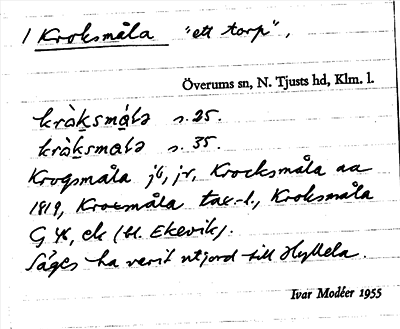 1 Kroksmåla "ett torp",
Överums sn, N. Tjusts hd, Klm. l.
krȧ̀ksmå̀lə s. 25.
krȧ̀ksmålə s. 35.
Krogsmåla jb, jr, Krocksmåla aa
1819, Kroksmåla tax.-l., Kroksmåla
G 4, ek (bl. Ekevik).
Säges ha varit utjord till Hyllela.
Ivar Modéer 1955